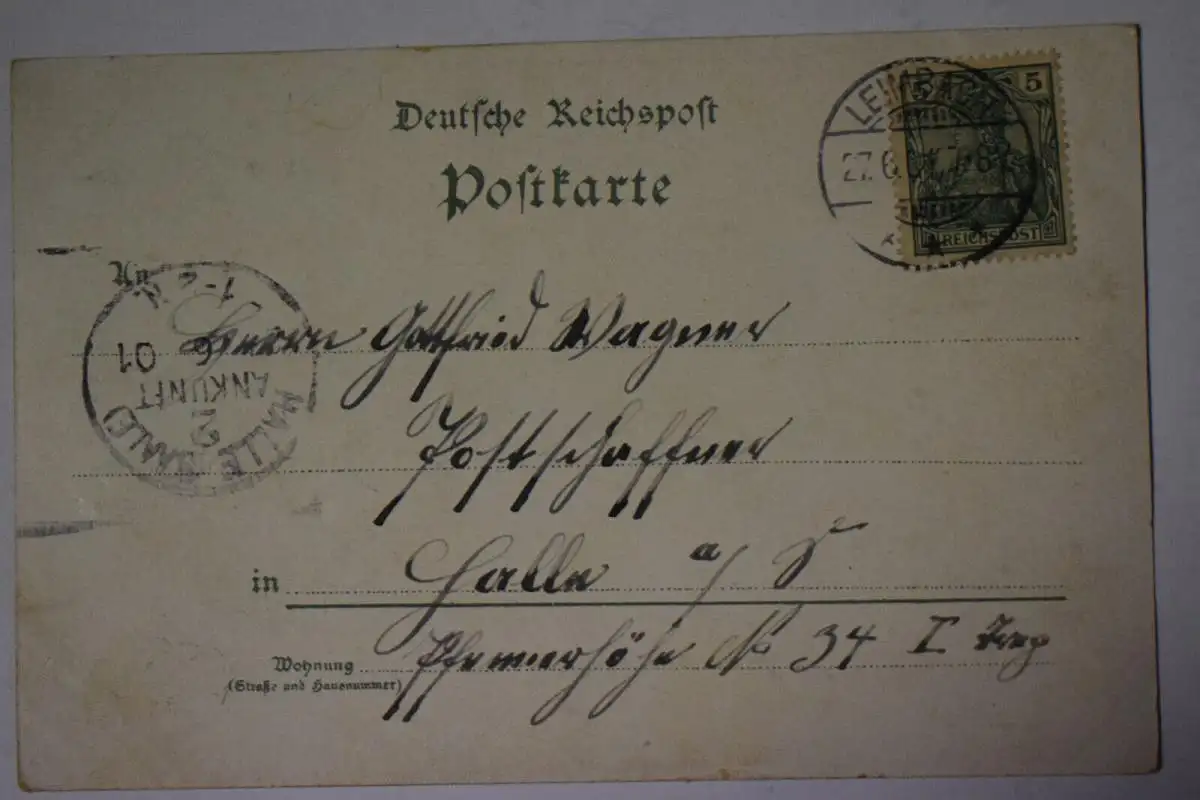 Deutsche Reichspost
Postkarte
LEIMBACH
27.6.01
5
REICHSPOST
An
Herrn Gottfried Wagner
Postschaffner
in Halle a/S
Wohnung
(Straße und Hausnummer)
No 34 I Trep
1-2 N
6 01
ANKUNFT
2
HALLE (SAALE)